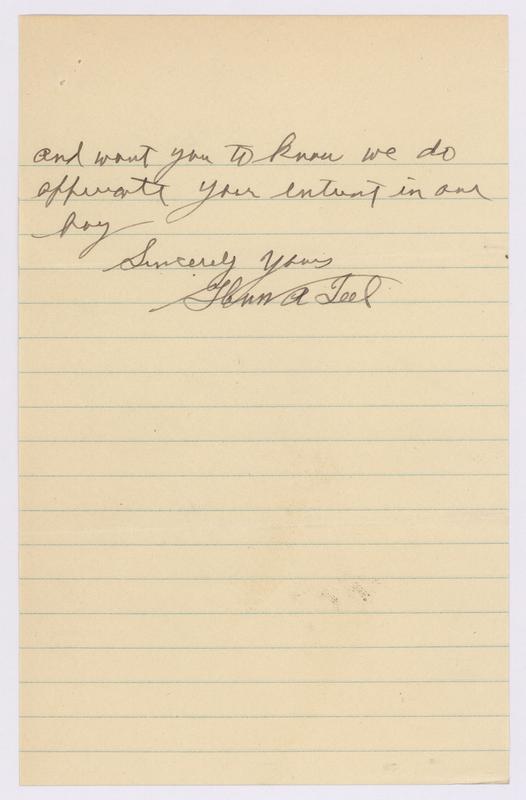 and want you to know we do
appreciate your interest in our
boy
Sincerely Yours
Glenn A Teel